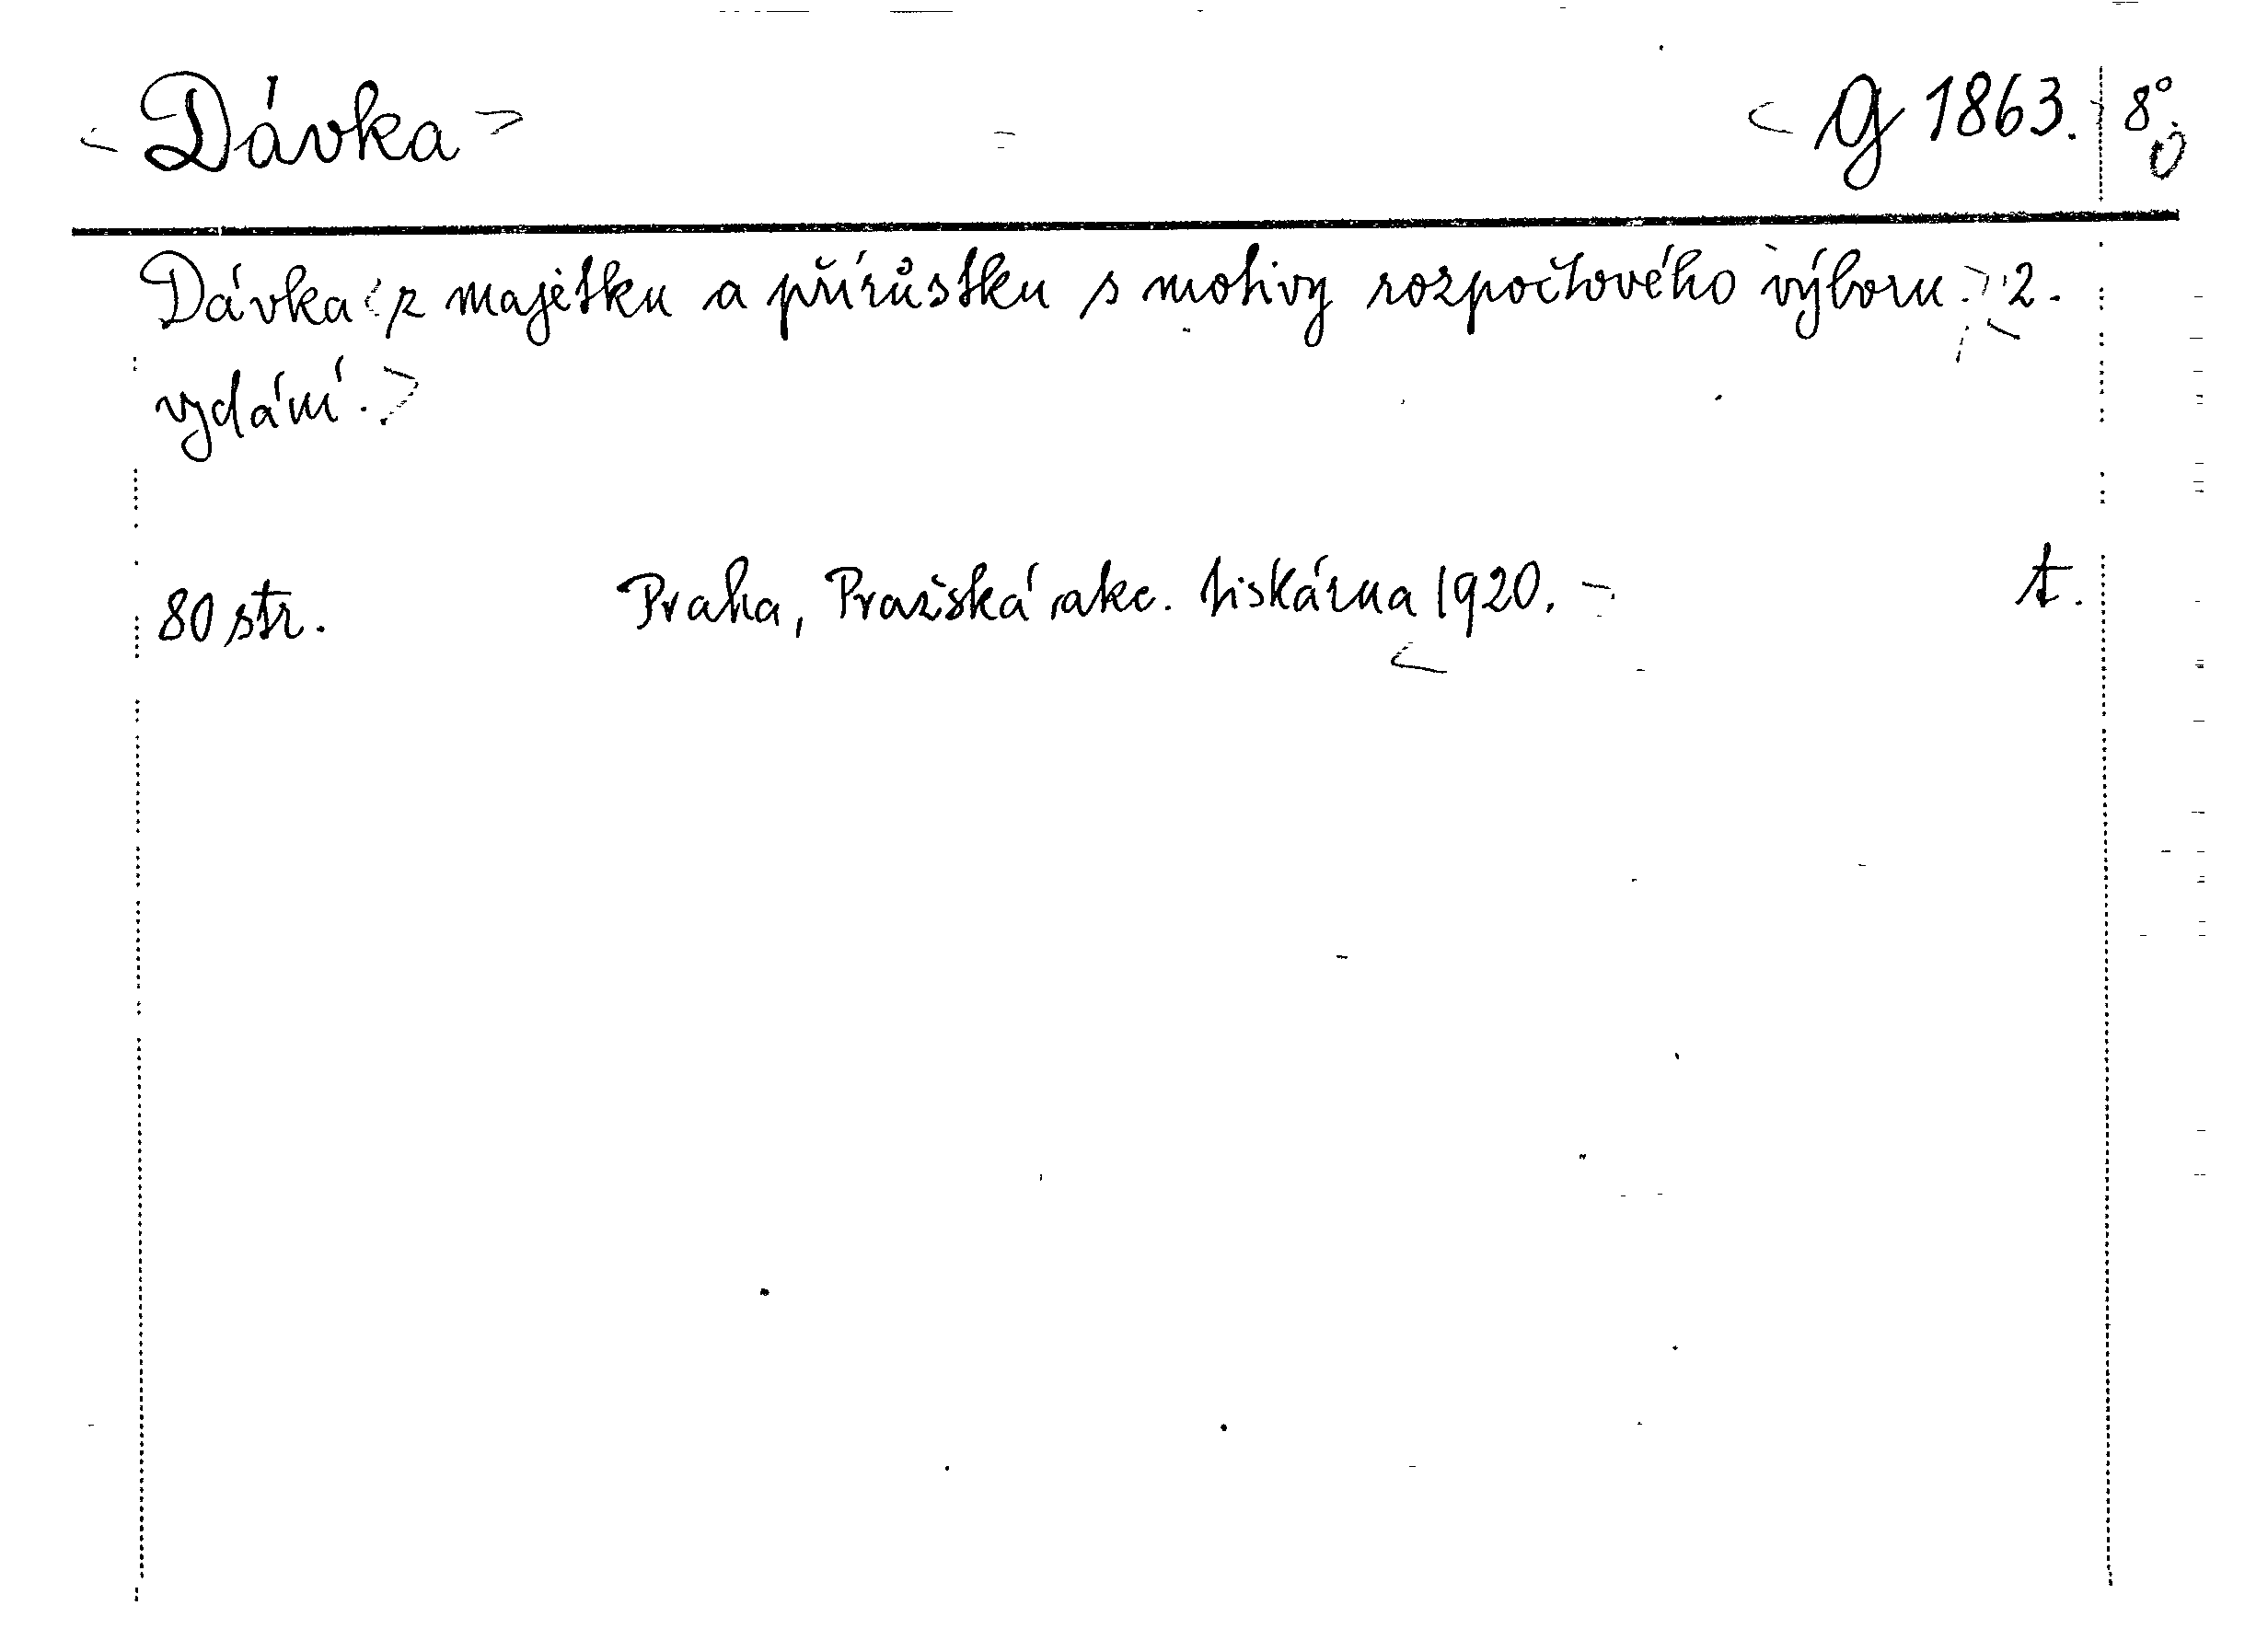 Dávka G 1863. 8°
Dávka z majetku a přírůstku s motivy rozpočtového výboru. 2.
vydání.
80 str. Praha, Pražská akc. tiskárna 1920. t.